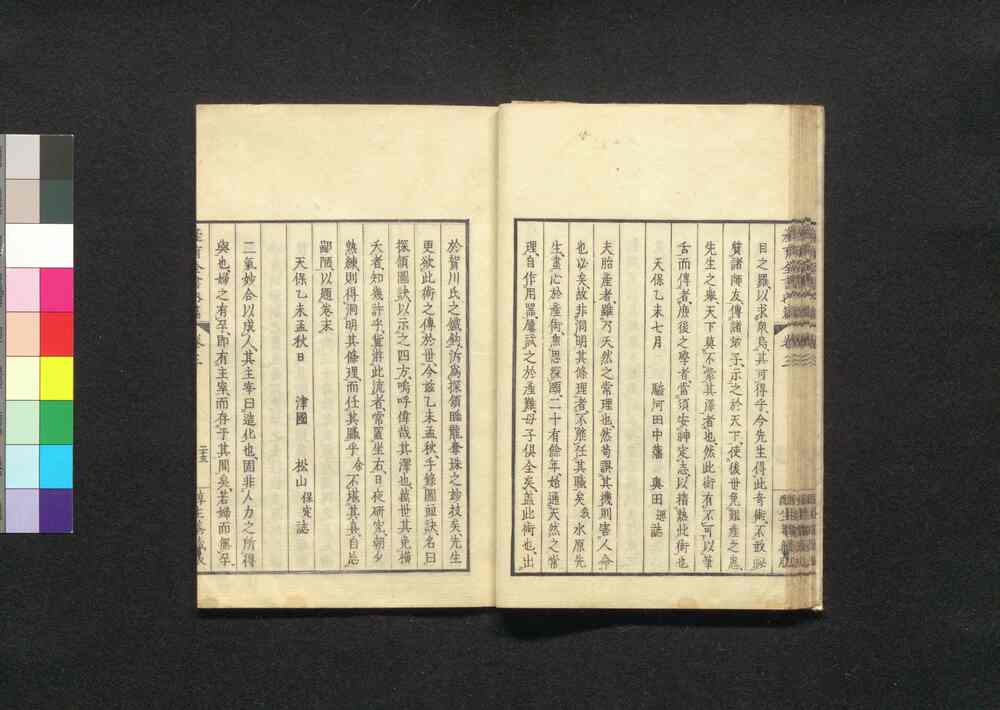 目之羅以求衆鳥其可得乎今先生得此奇術不敢祕
質諸師友傳諸弟子示之於天下使後世免難産之患
先生之擧天下莫不蒙其澤者也然此術有不可以筆
舌而傳者庶後之學者當須安神定志以精熟此術也
天保乙未七月 駿河田中藩 奧田𢌞誌
夫胎産者雖乃天然之常理也然苟誤其機則害人命
也必矣故非洞明其條理者不能任其職矣我水原先
生盡心於産術焦思探頤二十有餘年始通天然之常
理自作用器屢試之於産難母子倶全矣盖此術也出
於賀川氏之鐵鈎泝為探領臨龍奪珠之妙技矣先生
更欲此術之傳於世今茲乙未孟秋手錄圖與訣名曰
探領圖訣以示之四方嗚呼偉哉其澤也萬世其免橫
夭者知幾許乎冀游此流者常置坐右日夜研究朝夕
熟練則得洞明其條理而任其職乎余不堪其喜自忘
鄙陋以題卷末
天保乙未孟秋日 津國 松山保定誌
二氣妙合以成人其主宰曰造化也固非人力之所得
與也婦之有卒即有主宰而存于其間矣若婦而罹卒
二十五